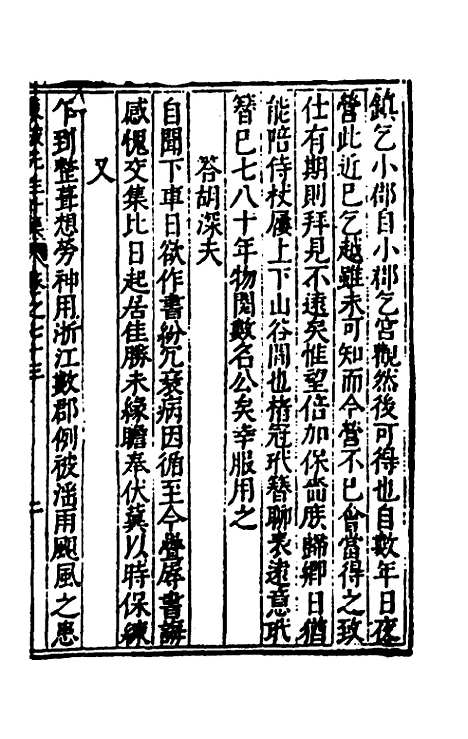 鎮乞小郡自小郡乞宮觀然後可得也自數年日夜
營此近已乞越雖未可知而今營不已會當得之致
仕有期則拜見不遠矣惟望倍加保嗇庶歸鄉日猶
能陪侍杖屨上下山谷間也楮冠玳簪聊表遠意玳
簪已七八十年物閱數名公矣幸服用之
答胡深夫
自聞下車日欲作書紛冗衰病因循至今疊辱書誨
感愧交集比日起居佳勝未緣瞻奉伏冀以時保練
又
乍到整葺想勞神用浙江數郡例被淫雨颶風之患
東坡先生外集卷之七十三